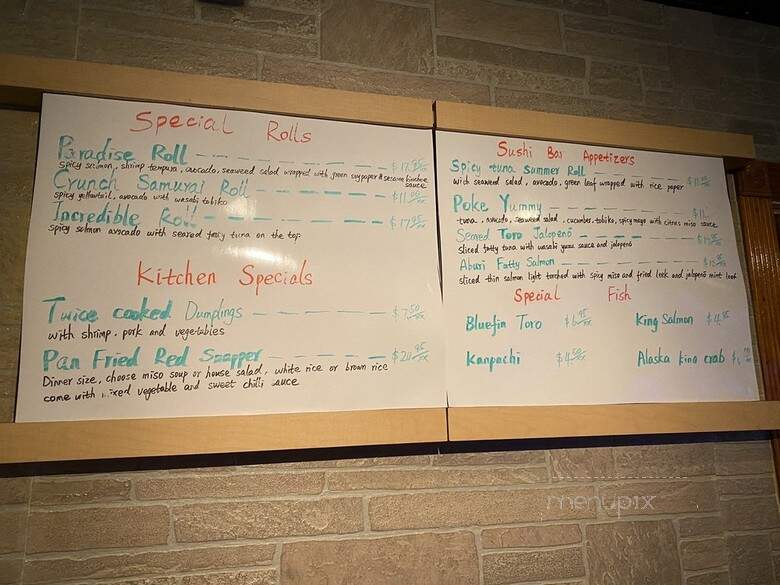 Special Rolls
Paradise Roll
spicy salmon, shrimp tempura, avocado, seaweed salad wrapped with green soy paper & sesame
sauce
Crunch Samurai Roll $11.95
spicy yellowtail, avocado with wasabi tobiko
Incredible Roll $17.95
spicy salmon avocado with seared fatty tuna on the top
Kitchen Specials
Twice cooked Dumplings $7.50
with shrimp. pork and vegetables
Pan Fried Red Snapper $20.95
Dinner size, choose miso soup or house salad, white rice or brown rice
come with mixed vegetable and sweet chilli sauce
Sushi Bar Appetizers
Spicy tuna summer Roll
with seaweed salad, avocado, green leaf wrapped with rice paper
Poke Yummy
tuna, avocado, seaweed salad, cucumber, tobiko, spicy mayo with citrus miso sauce
Seared Toro Jalopeno
sliced fatty tuna with wasabi yuzu sauce and jalapeno
Aburi Fatty Salmon
sliced thin salmon light torched with spicy miso and fried leek and jalapeno mint leaf
Special Fish
Bluefin Toro $6.95 King Salmon
Kanpachi $4.50 Alaska king crab
menupix